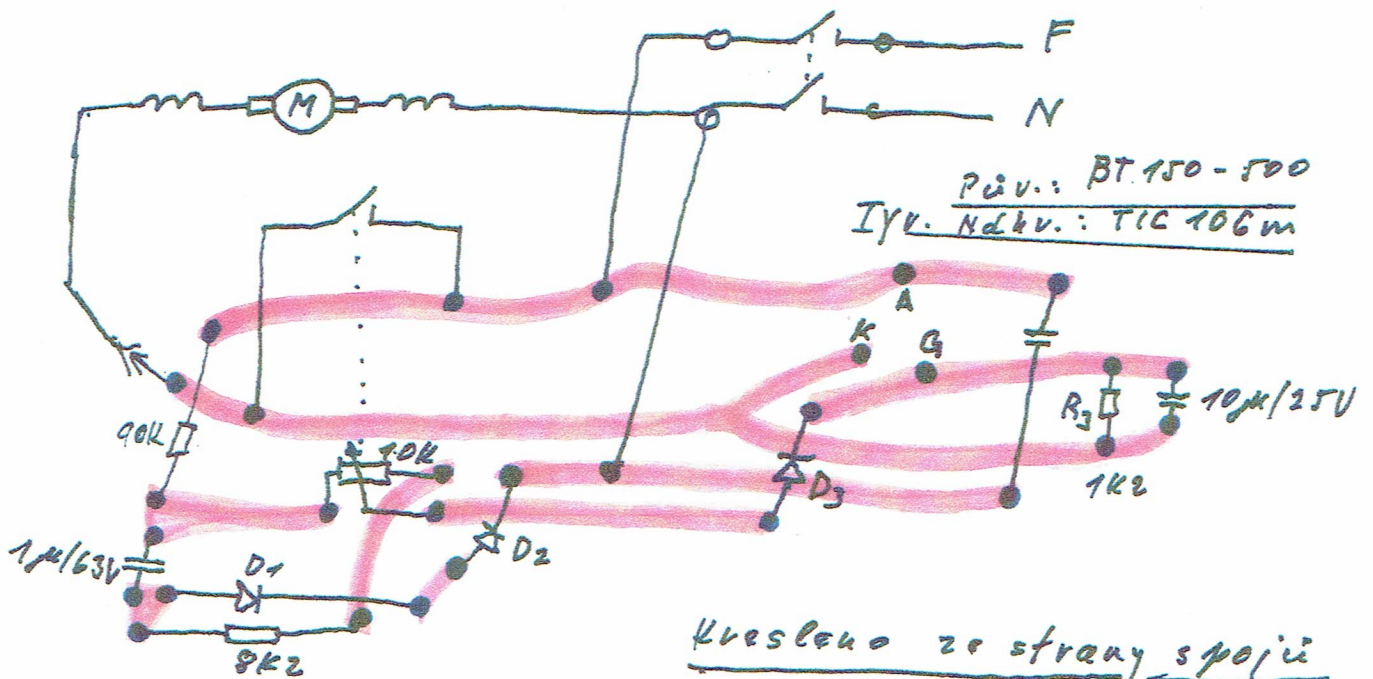 F
M
N
Pův.: BT 150-500
Týv. Náhv.: TIC 106m
A
K
G
R3
10µ/25V
90K
10K
D3
1K2
1µ/63V
D2
D1
8K2
Kresleno ze strany spojů